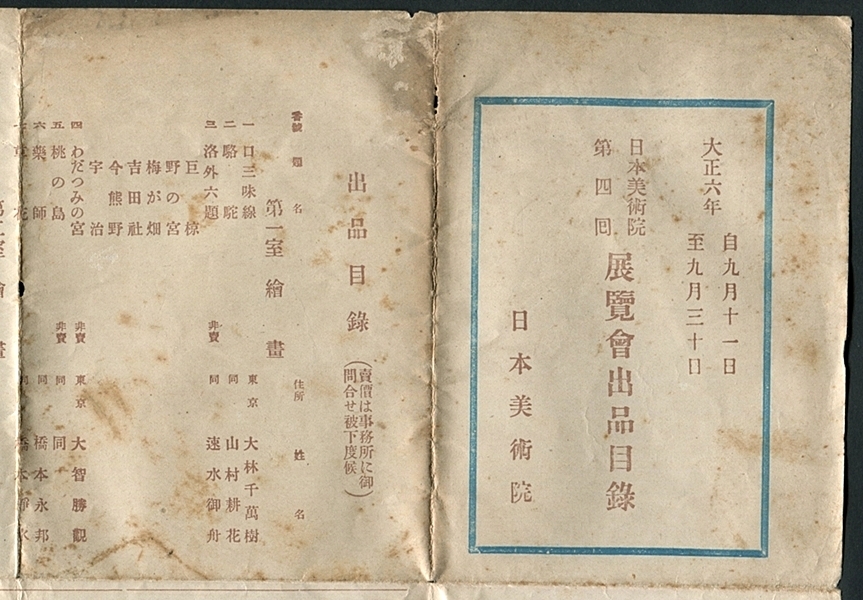 大正六年
自九月十一日
至九月三十日
日本美術院
第四回
展覽會出品目錄
日本美術院
出品目錄
(賣價は事務所に御
問合せ被下度候)
番號 題名 住所 姓名
第一室 繪畫
一 口三味線 東京 大林千萬樹
二 駱駝 同 山村耕花
三 洛外六題 非賣 同 速水御舟
巨椋
野の宮
梅が畑
吉田社
今熊野
宇治
四 わだつみの宮 非賣 東京 大智勝觀
五 桃の島 非賣 同 同
六 藥師 同 橋本永邦